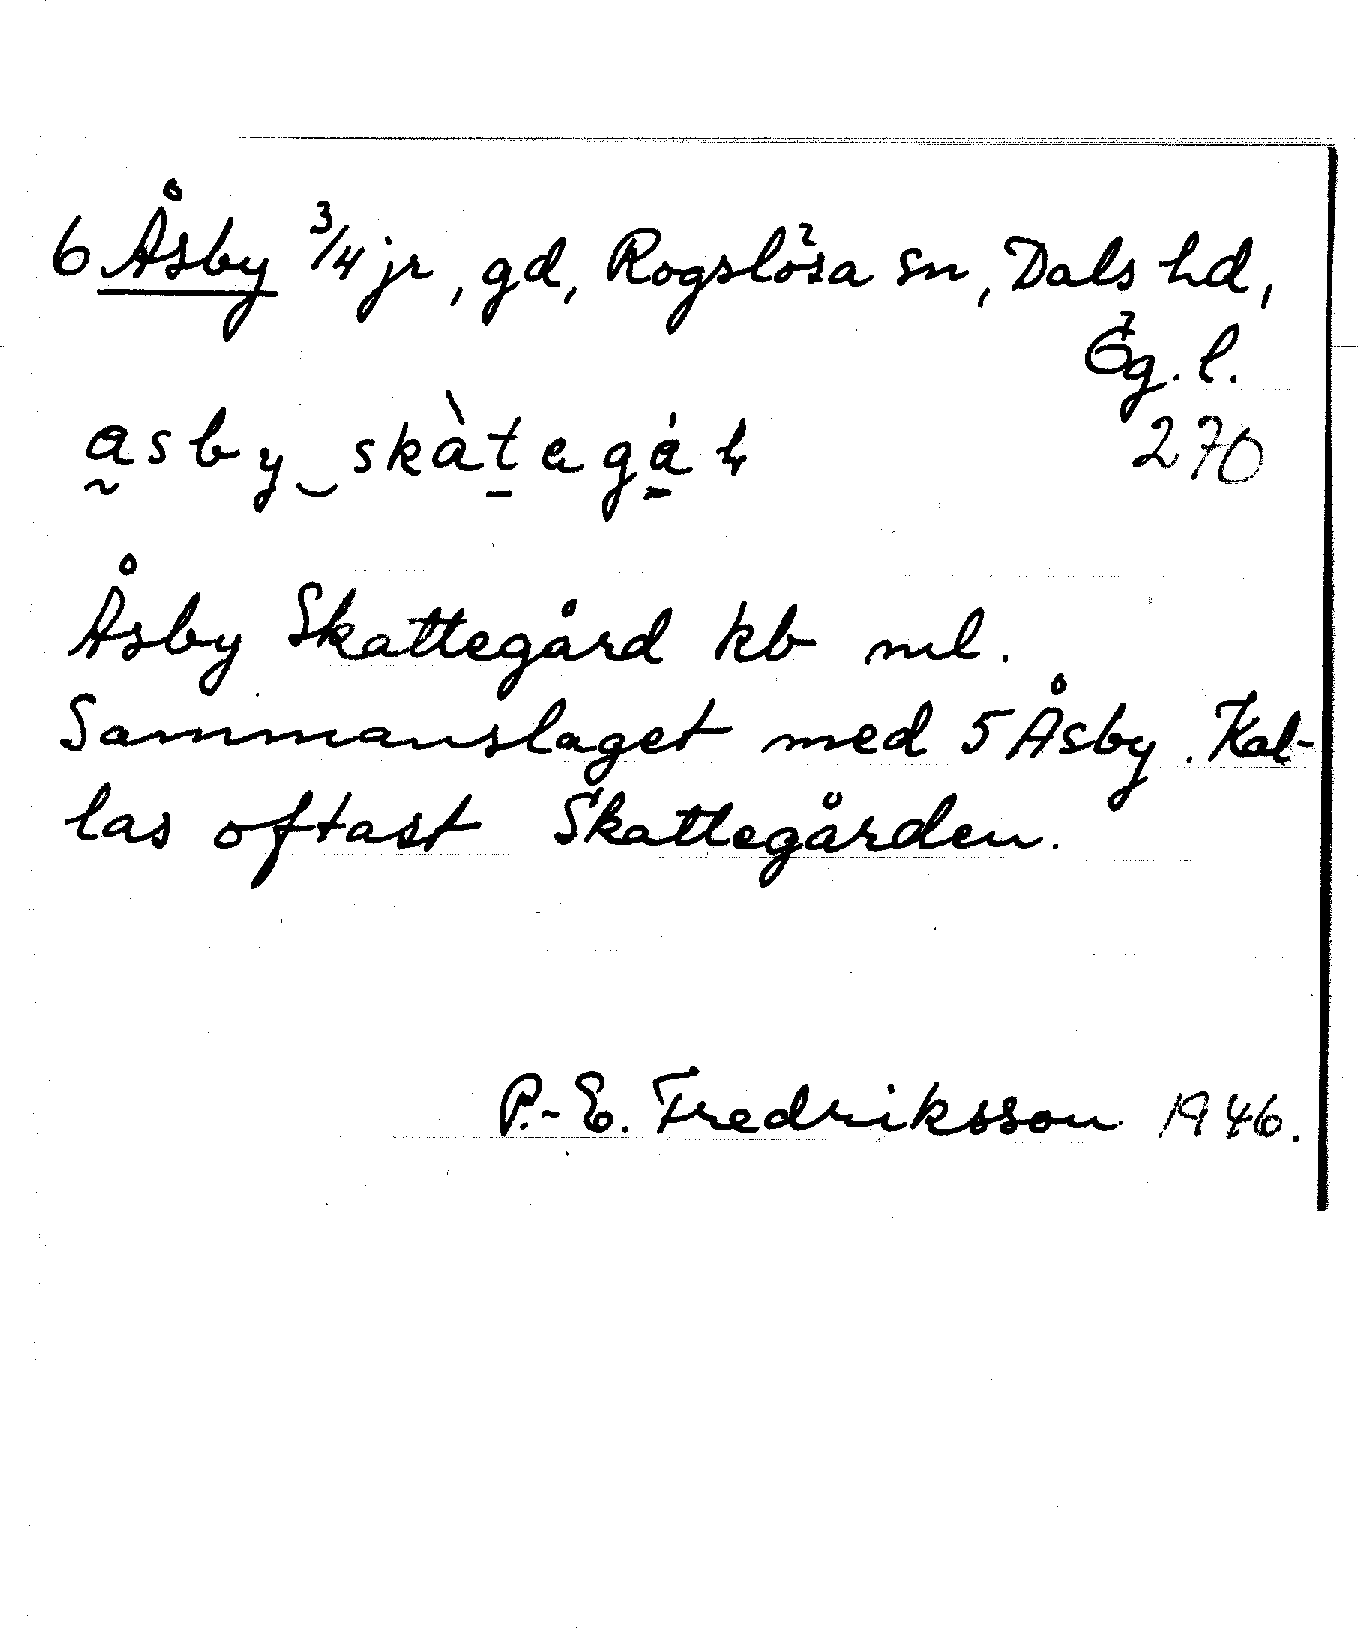 6 Åsby 3/4 jr, gd, Rogslösa sn, Dals hd,
Ög. l.
270
Åsby Skattegård kb ml.
Sammanslaget med 5 Åsby. Kal-
las oftast Skattegården.
P.-E. Fredriksson 1946.